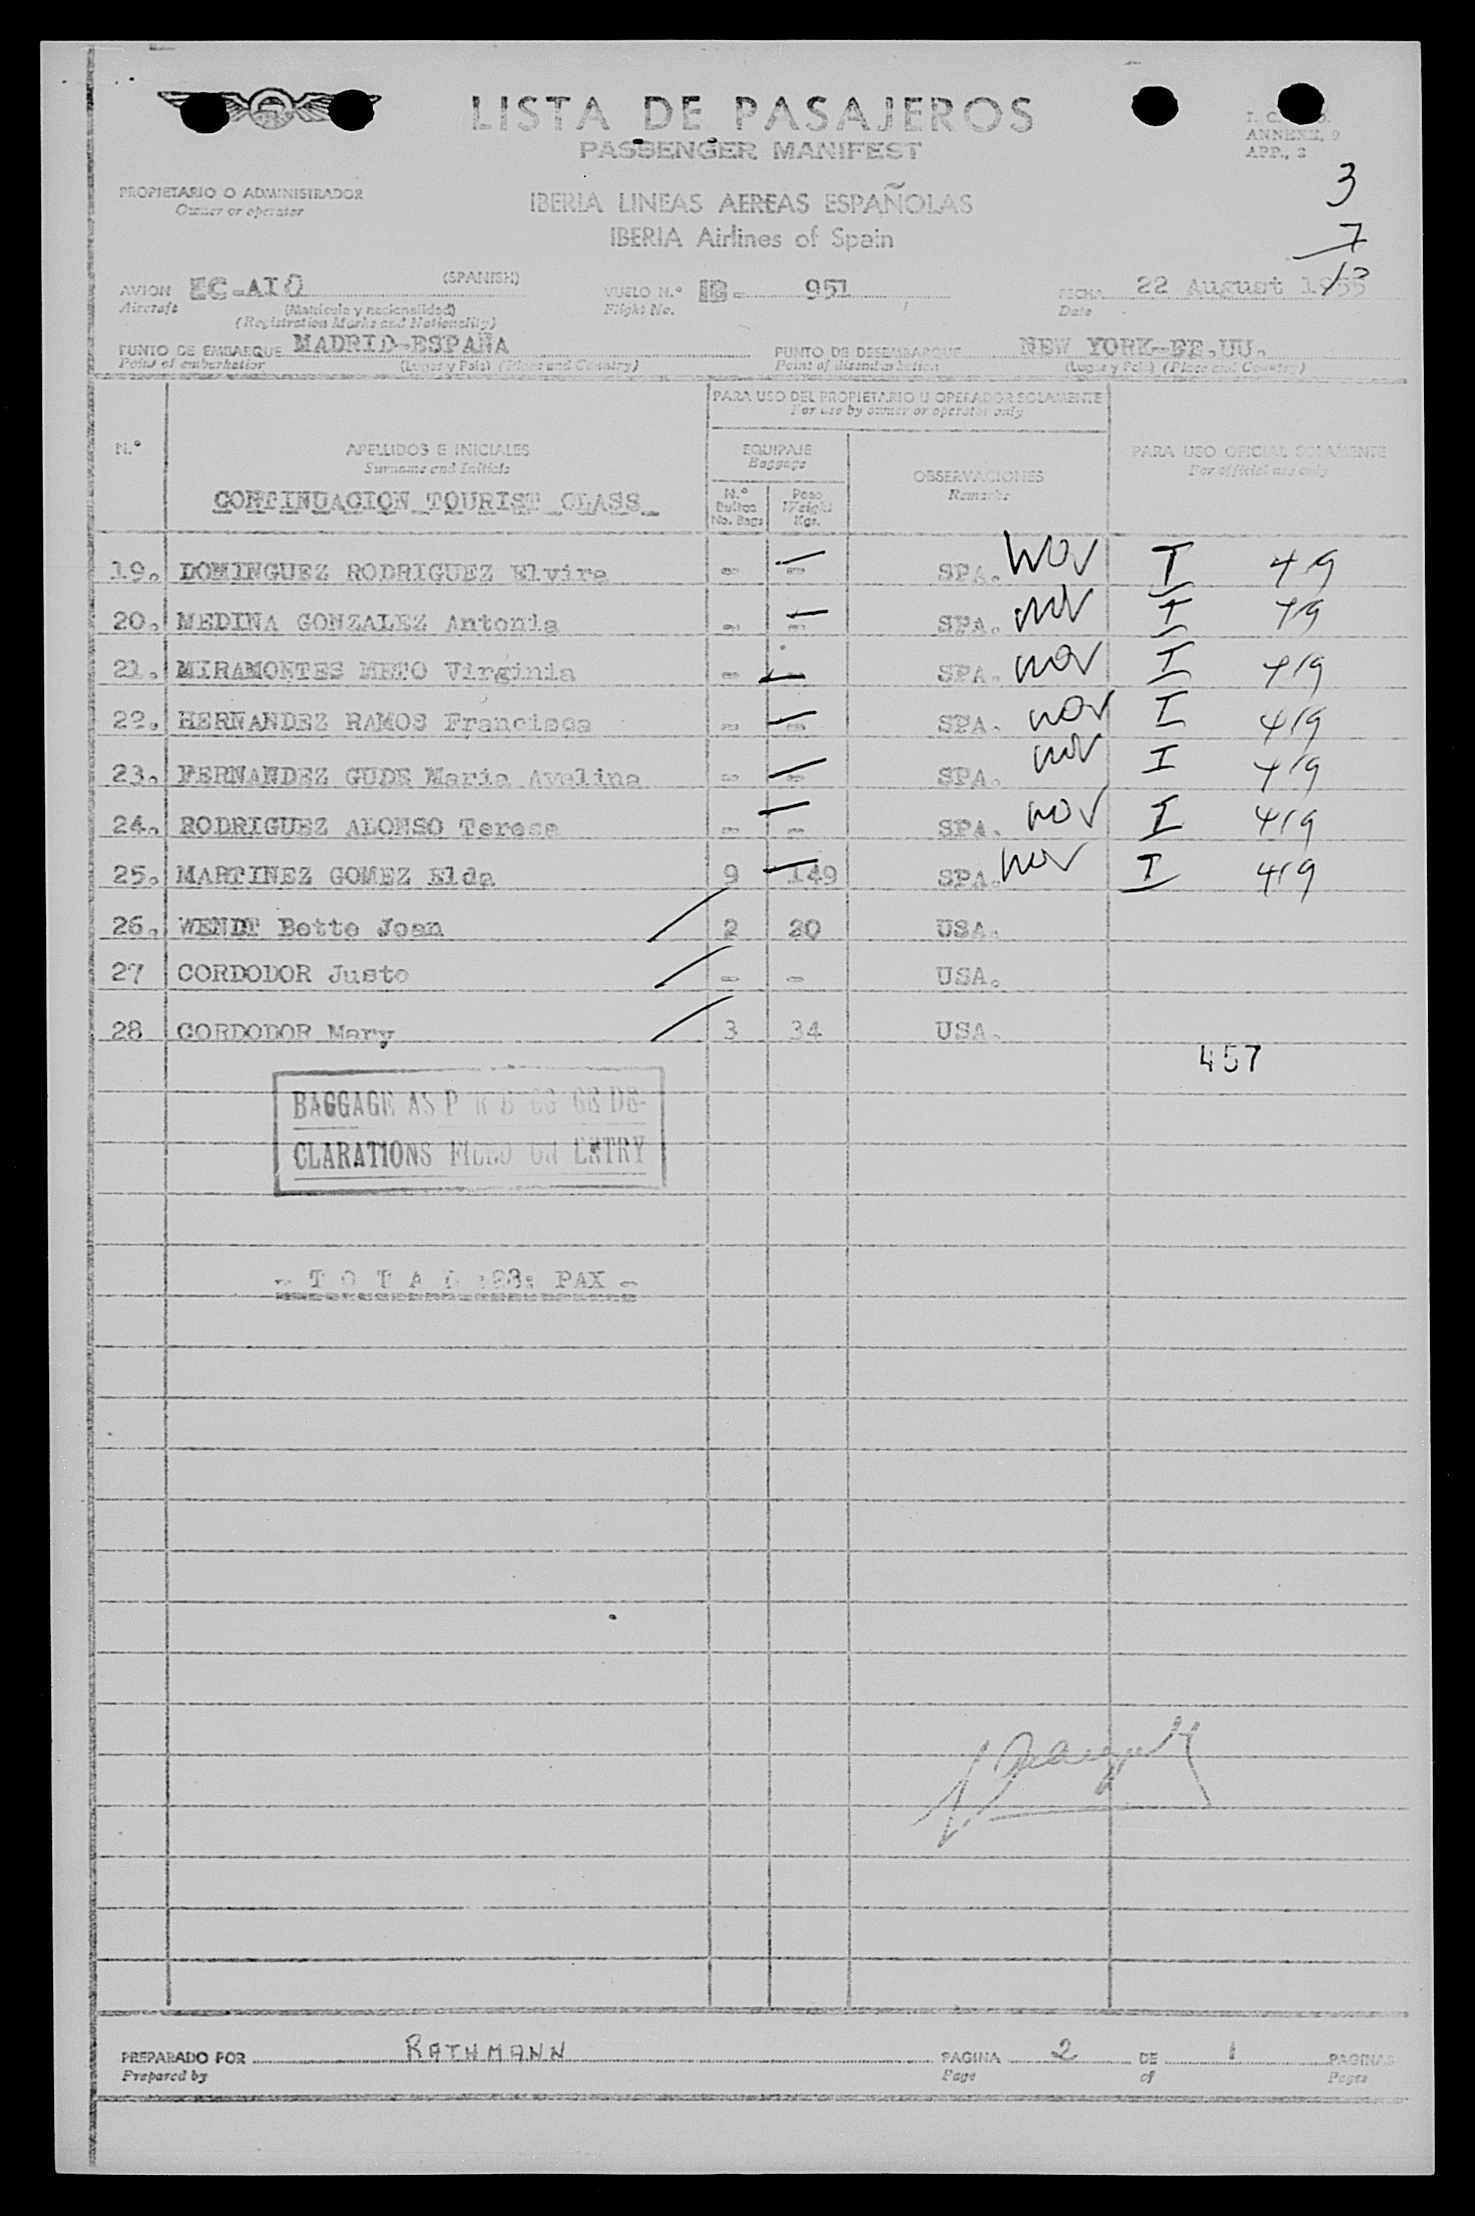 LISTA DE PASAJEROS
PASSENGER MANIFEST
I. C.
ANNEXE, 9
APP., 2
3
7
13
PROPIETARIO O ADMINISTRADOR
Owner or operator
IBERIA LINEAS AEREAS ESPAÑOLAS
IBERIA Airlines of Spain
AVION EC-AIO (SPANISH) VUELO N.º IB- 951 FECHA 22 August 1955
Aircraft (Matrícula y nacionalidad) Flight No. Date
(Registration Marks and Nationality)
PUNTO DE EMBARQUE MADRID-ESPAÑA PUNTO DE DESEMBARQUE NEW YORK-EE.UU.
Point of embarkation (Lugar y País) (Place and Country) Point of disembarkation (Lugar y País) (Place and Country)
PARA USO DEL PROPIETARIO U OPERADOR SOLAMENTE
For use by owner or operator only
N.º APELLIDOS E INICIALES EQUIPAJE PARA USO OFICIAL SOLAMENTE
Surname and Initials Baggage OBSERVACIONES For official use only
CONTINUACION TOURIST CLASS N.º Bultos No. Bags Peso Weight Kgs. Remarks
19. DOMINGUEZ RODRIGUEZ Elvira - - SPA. WOV I 419
20. MEDINA GONZALEZ Antonia - - SPA. wov I 419
21. MIRAMONTES METO Virginia - - SPA. wov I 419
22. HERNANDEZ RAMOS Francisca - - SPA. wov I 419
23. FERNANDEZ GUDE Maria Avelina - - SPA. wov I 419
24. RODRIGUEZ ALONSO Teresa - - SPA. wov I 419
25. MARTINEZ GOMEZ Elda 9 149 SPA. wov I 419
26. WENDT Bette Joan 2 20 USA.
27 CORDODOR Justo - - USA.
28 CORDODOR Mary 3 34 USA.
457
BAGGAGE AS P R B GG GE DE-
CLARATIONS FILED ON ENTRY
- T O T A L :28: PAX -
PREPARADO POR RATHMANN PAGINA 2 DE 1 PAGINAS
Prepared by Page of Pages